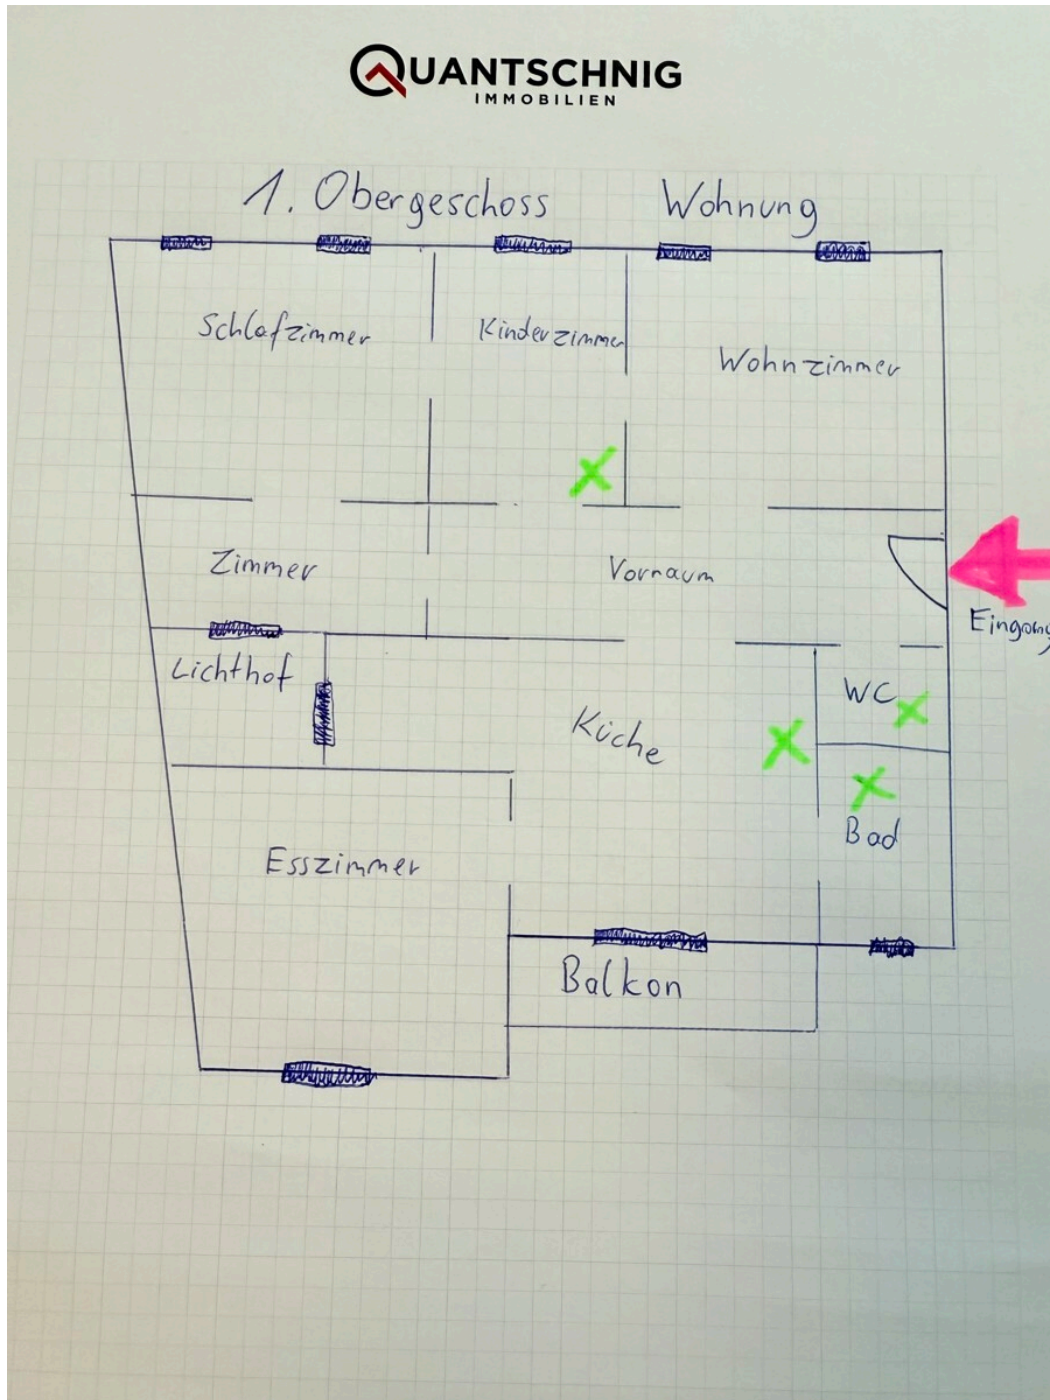 QUANTSCHNIG
IMMOBILIEN
1. Obergeschoss Wohnung
Schlafzimmer
Kinderzimmer
Wohnzimmer
Zimmer
Vorraum
Eingang
Lichthof
WC
Küche
Bad
Esszimmer
Balkon